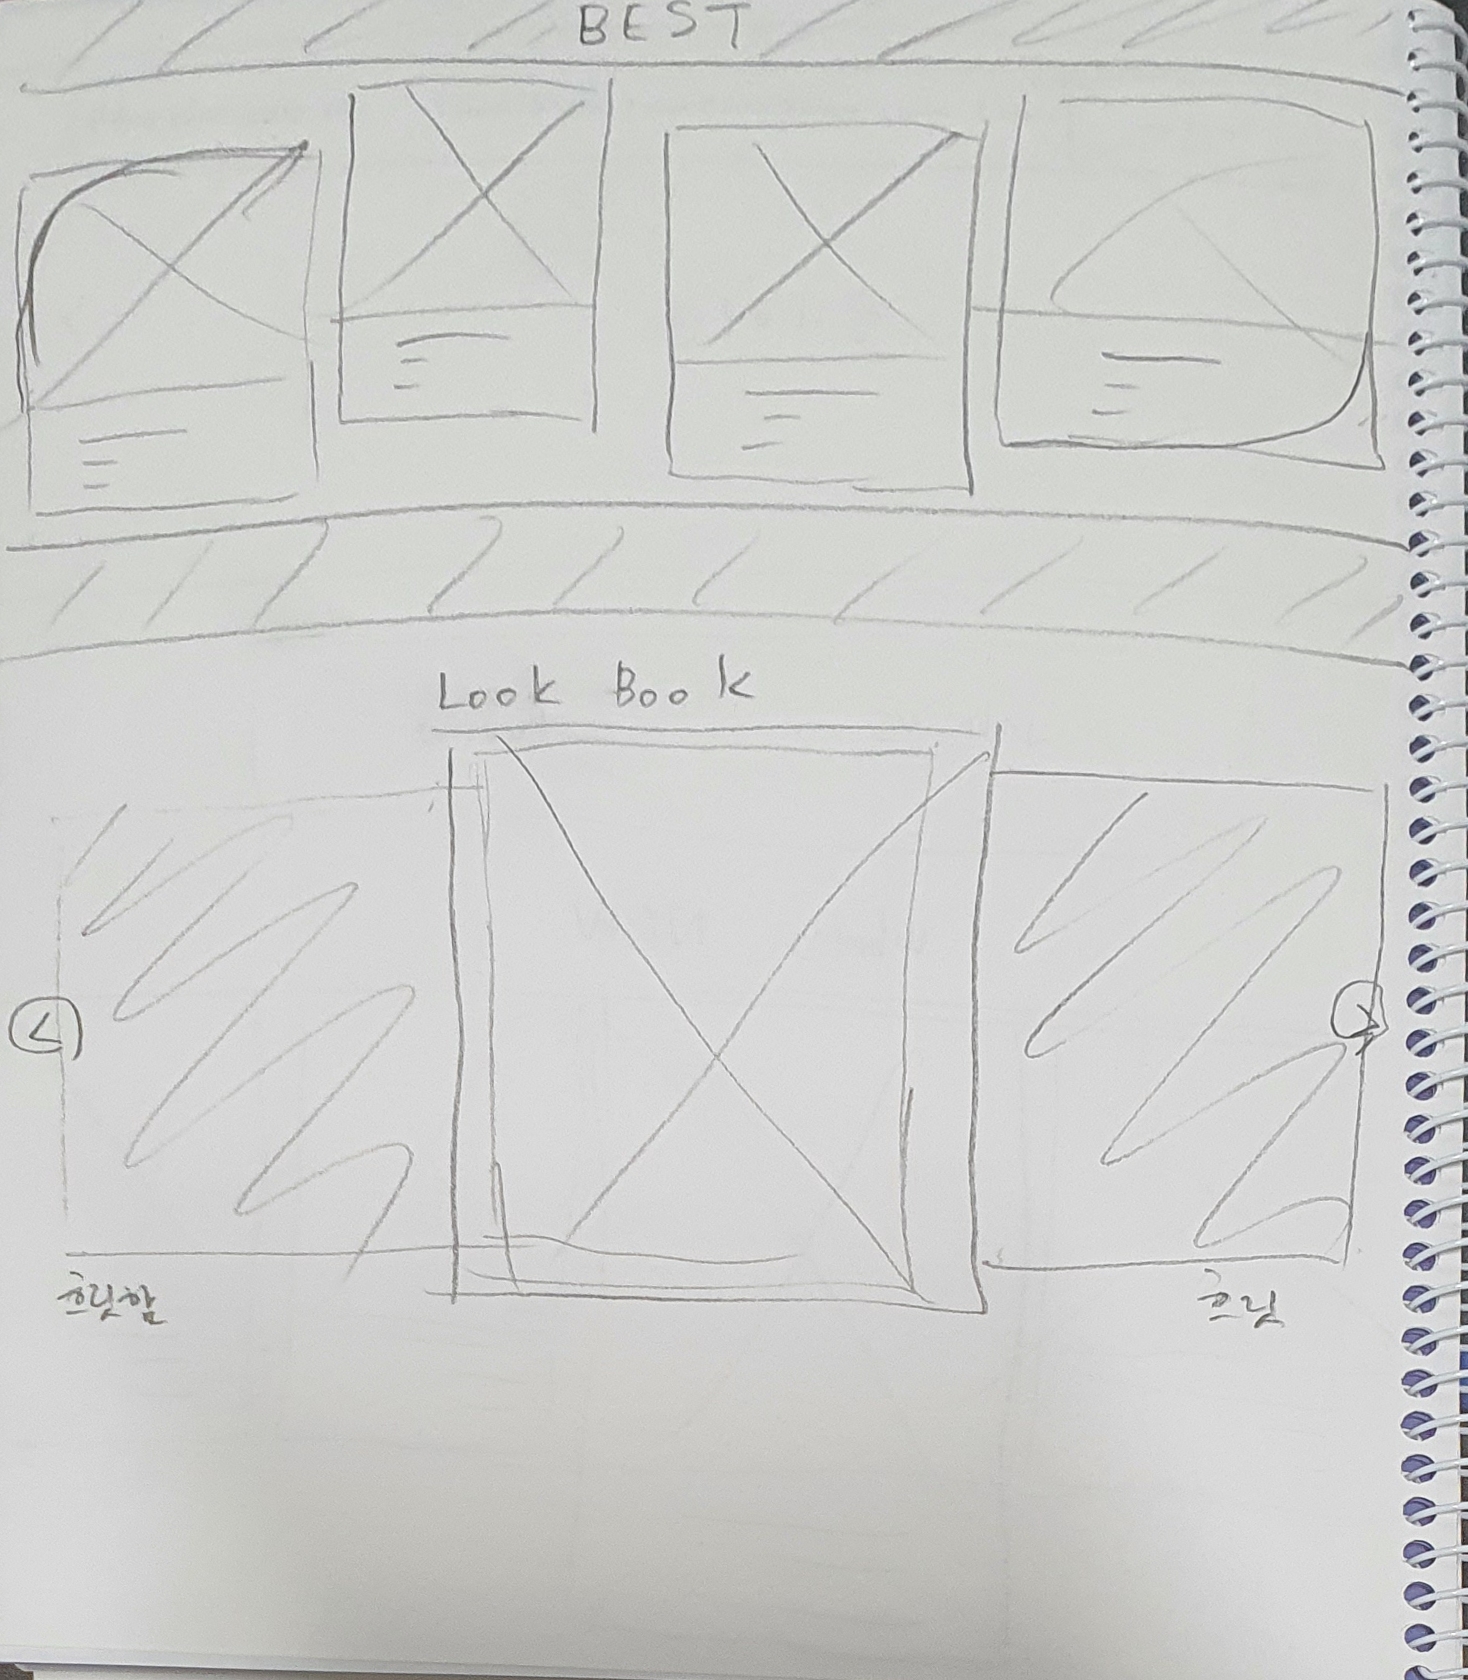 BEST
Look Book
<
>
흐림함
흐림